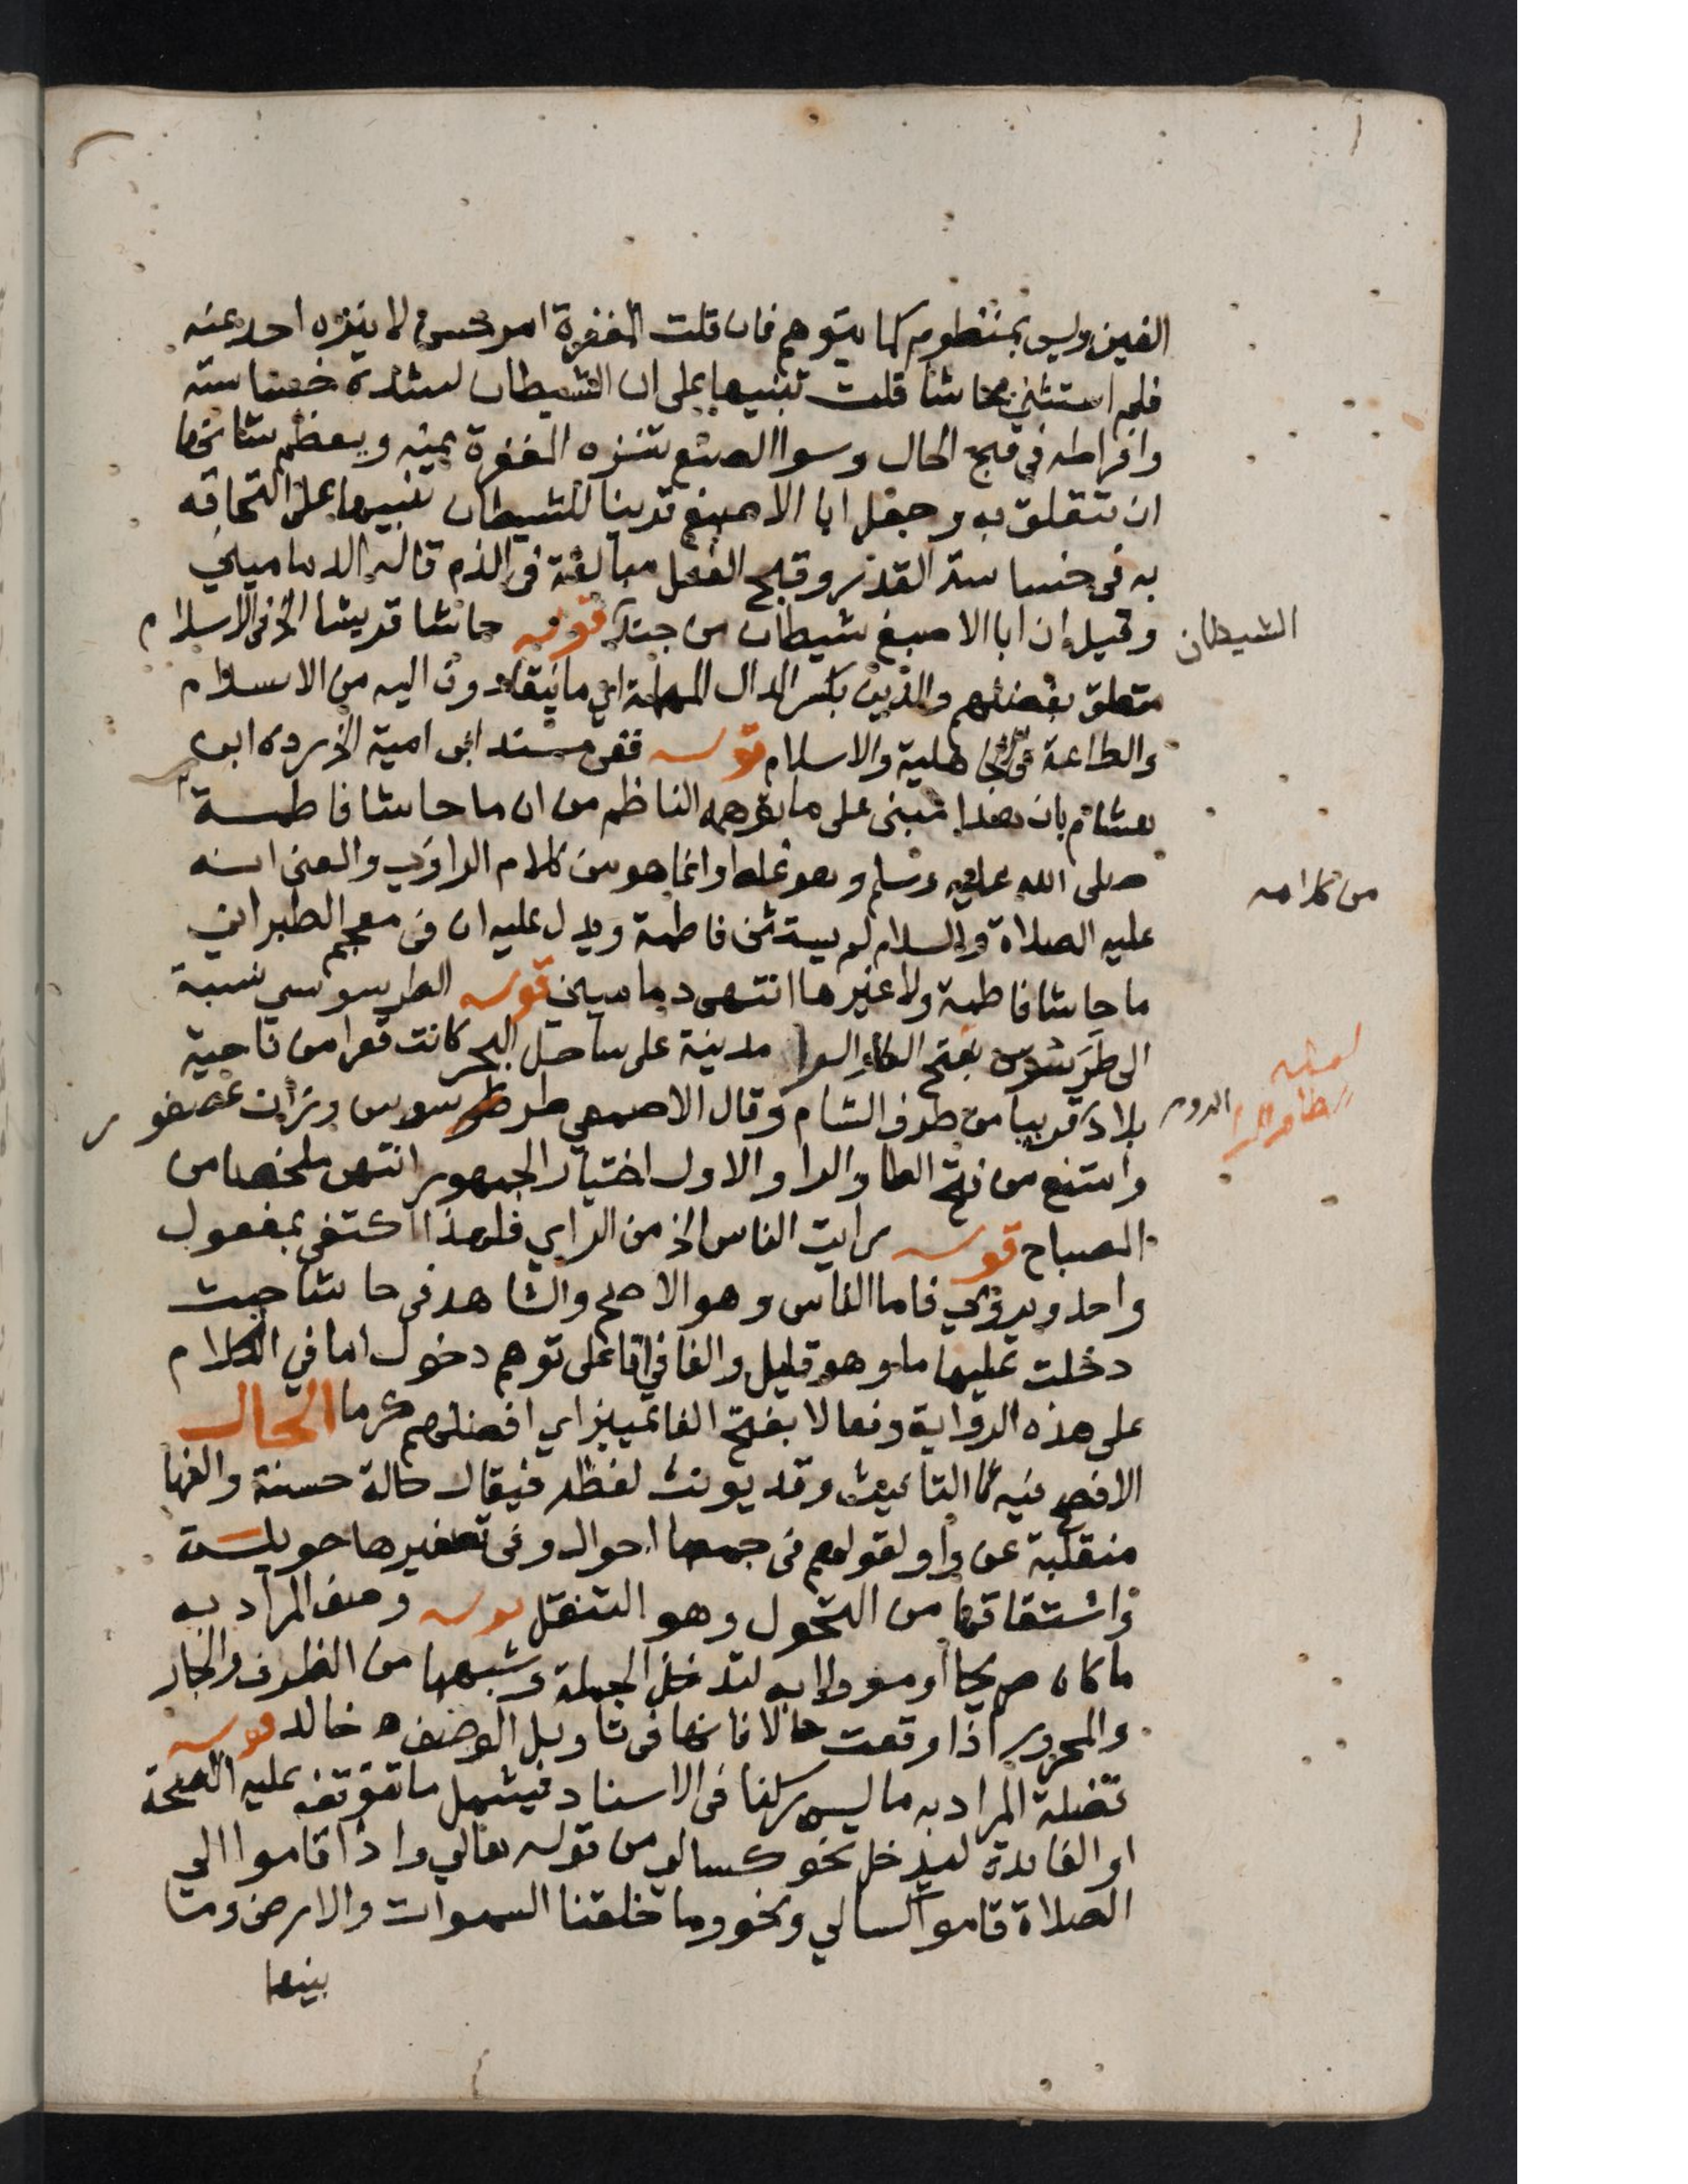 الغين وليس بمنظوم كما يتوهم فان قلت المغفرة امر حسن لا ينزه احد عنه
فلم استثنى بحاشا قلت تنبيها على ان الشيطان لشدة خساسته
وافراطه في قبح الحال وسوا الصنع تنزه المغفرة عنه ويعظم شانها
ان تتعلق به وجعل ابا الاصبغ قرينا للشيطان تنبيها على التحاقه
به في خساسة القدر وقبح الفعل مبالغة في الذم قاله الدماميني
وقيل ان ابا الاصبغ شيطان من جند قوله حاشا قريشا الخ في الاسلام
الشيطان
متعلق بفضلهم والدين بكسر الدال المهملة اي ما ينقادون اليه من الاسلام
والطاعة في الجاهلية والاسلام قوله ففي مسند ابى امية الخ رده ابن
هشام بان هذا مبنى على ما توهمه الناظم من ان ما حاشا فاطمة
من كلامه
صلى الله عليه وسلم وهو غلط وانما هو من كلام الراوي والمعنى انه
عليه الصلاة والسلام لم يستثن فاطمة ويدل عليه ان في معجم الطبراني
ما حاشا فاطمة ولا غيرها انتهى دماميني قوله الطرسوسي نسبة
الى طرسوس بفتح الطا والرا مدينة على ساحل البحر كانت ثغرا من ناحية
بلاد قريبا من طرف الشام وقال الاصمعي طرسوس وزان عصفور
الروم
وامتنع من فتح الطا والرا والاول اختيار الجمهور انتهى ملخصا من
المصباح قوله رايت الناس الخ من الراي فلهذا اكتفى بمفعول
واحد ويروى فاما الناس وهو الاصح والشاهد في حاشا حيث
دخلت عليها ما وهو قليل والفا في فانا على توهم دخول اما في الكلام
على هذه الرواية وفعالا بفتح الفا تمييز اي افضلهم كرما الحال
الافصح فيه التانيث وقد يونث لفظه فيقال حالة حسنة والفها
منقلبة عن واو لقولهم في جمعها احوال وفي تصغيرها حويلة
واشتقاقها من التحول وهو التنقل قوله وصف المراد به
ما كان صريحا او موولا به لتدخل الجملة وشبهها من الظرف والجار
والمجرور اذا وقعت حالا فانها في تاويل الوصف ه خالد قوله
فضلة المراد به ما ليس ركنا في الاسناد فيشمل ما تتوقف عليه الصحة
او الفايدة ليدخل نحو كسالى من قوله تعالى واذا قاموا الى
الصلاة قاموا كسالى ونحو وما خلقنا السموات والارض وما
بينهما